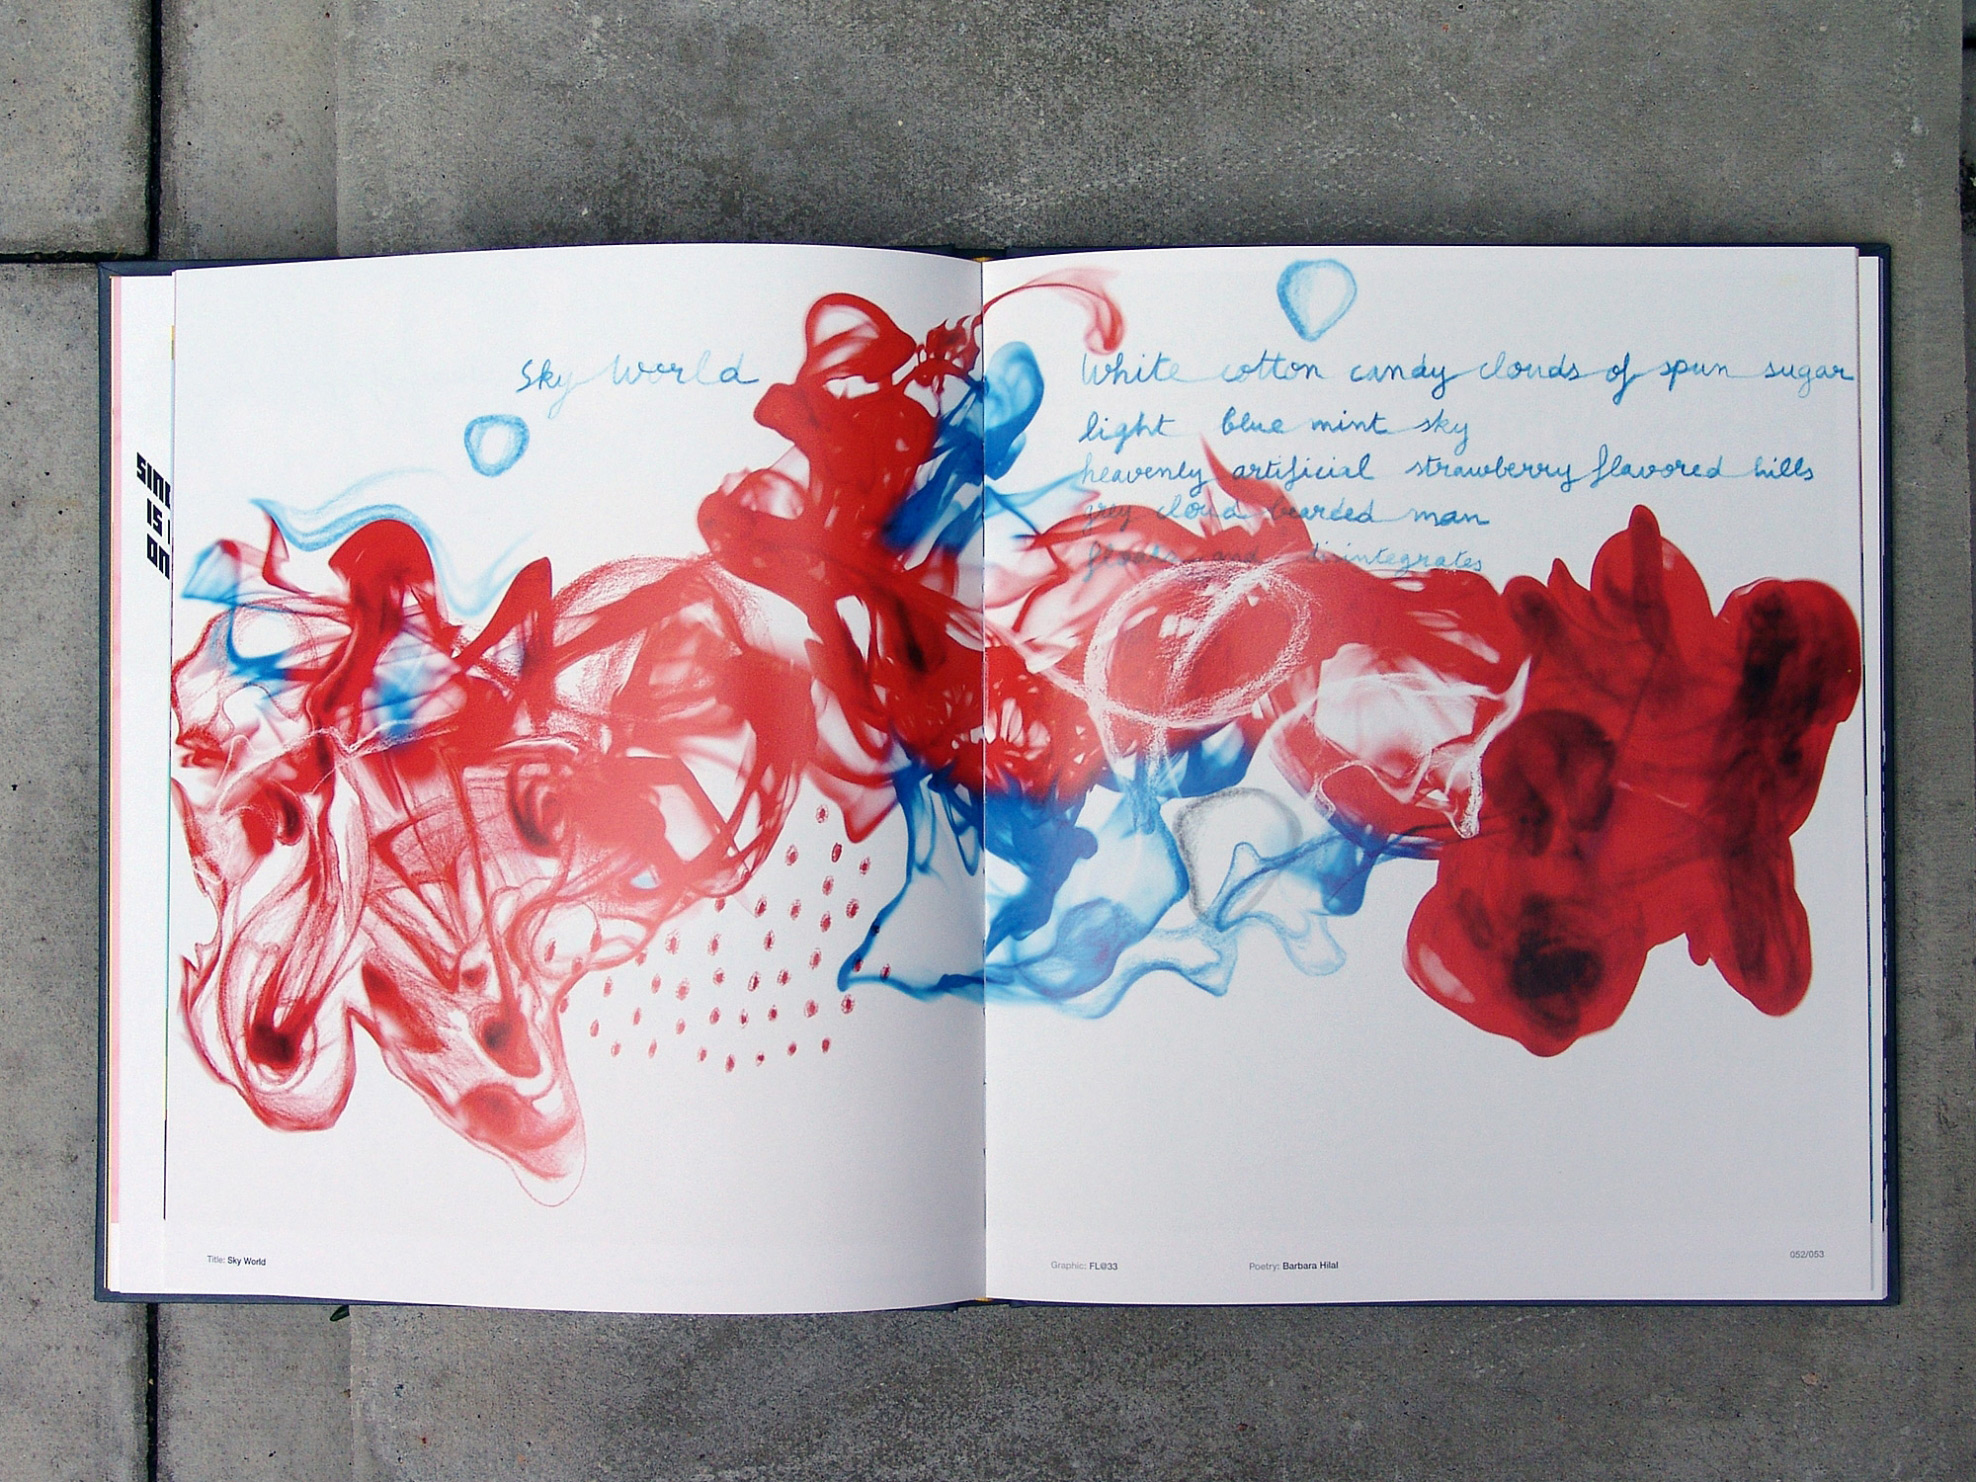 Sky World
White cotton candy clouds of spun sugar
light blue mint sky
heavenly artificial strawberry flavored hills
grey cloud bearded man
floats and disintegrates
SINC
IS
ON
Title: Sky World
Graphic: FL@33
Poetry: Barbara Hilal
052/053